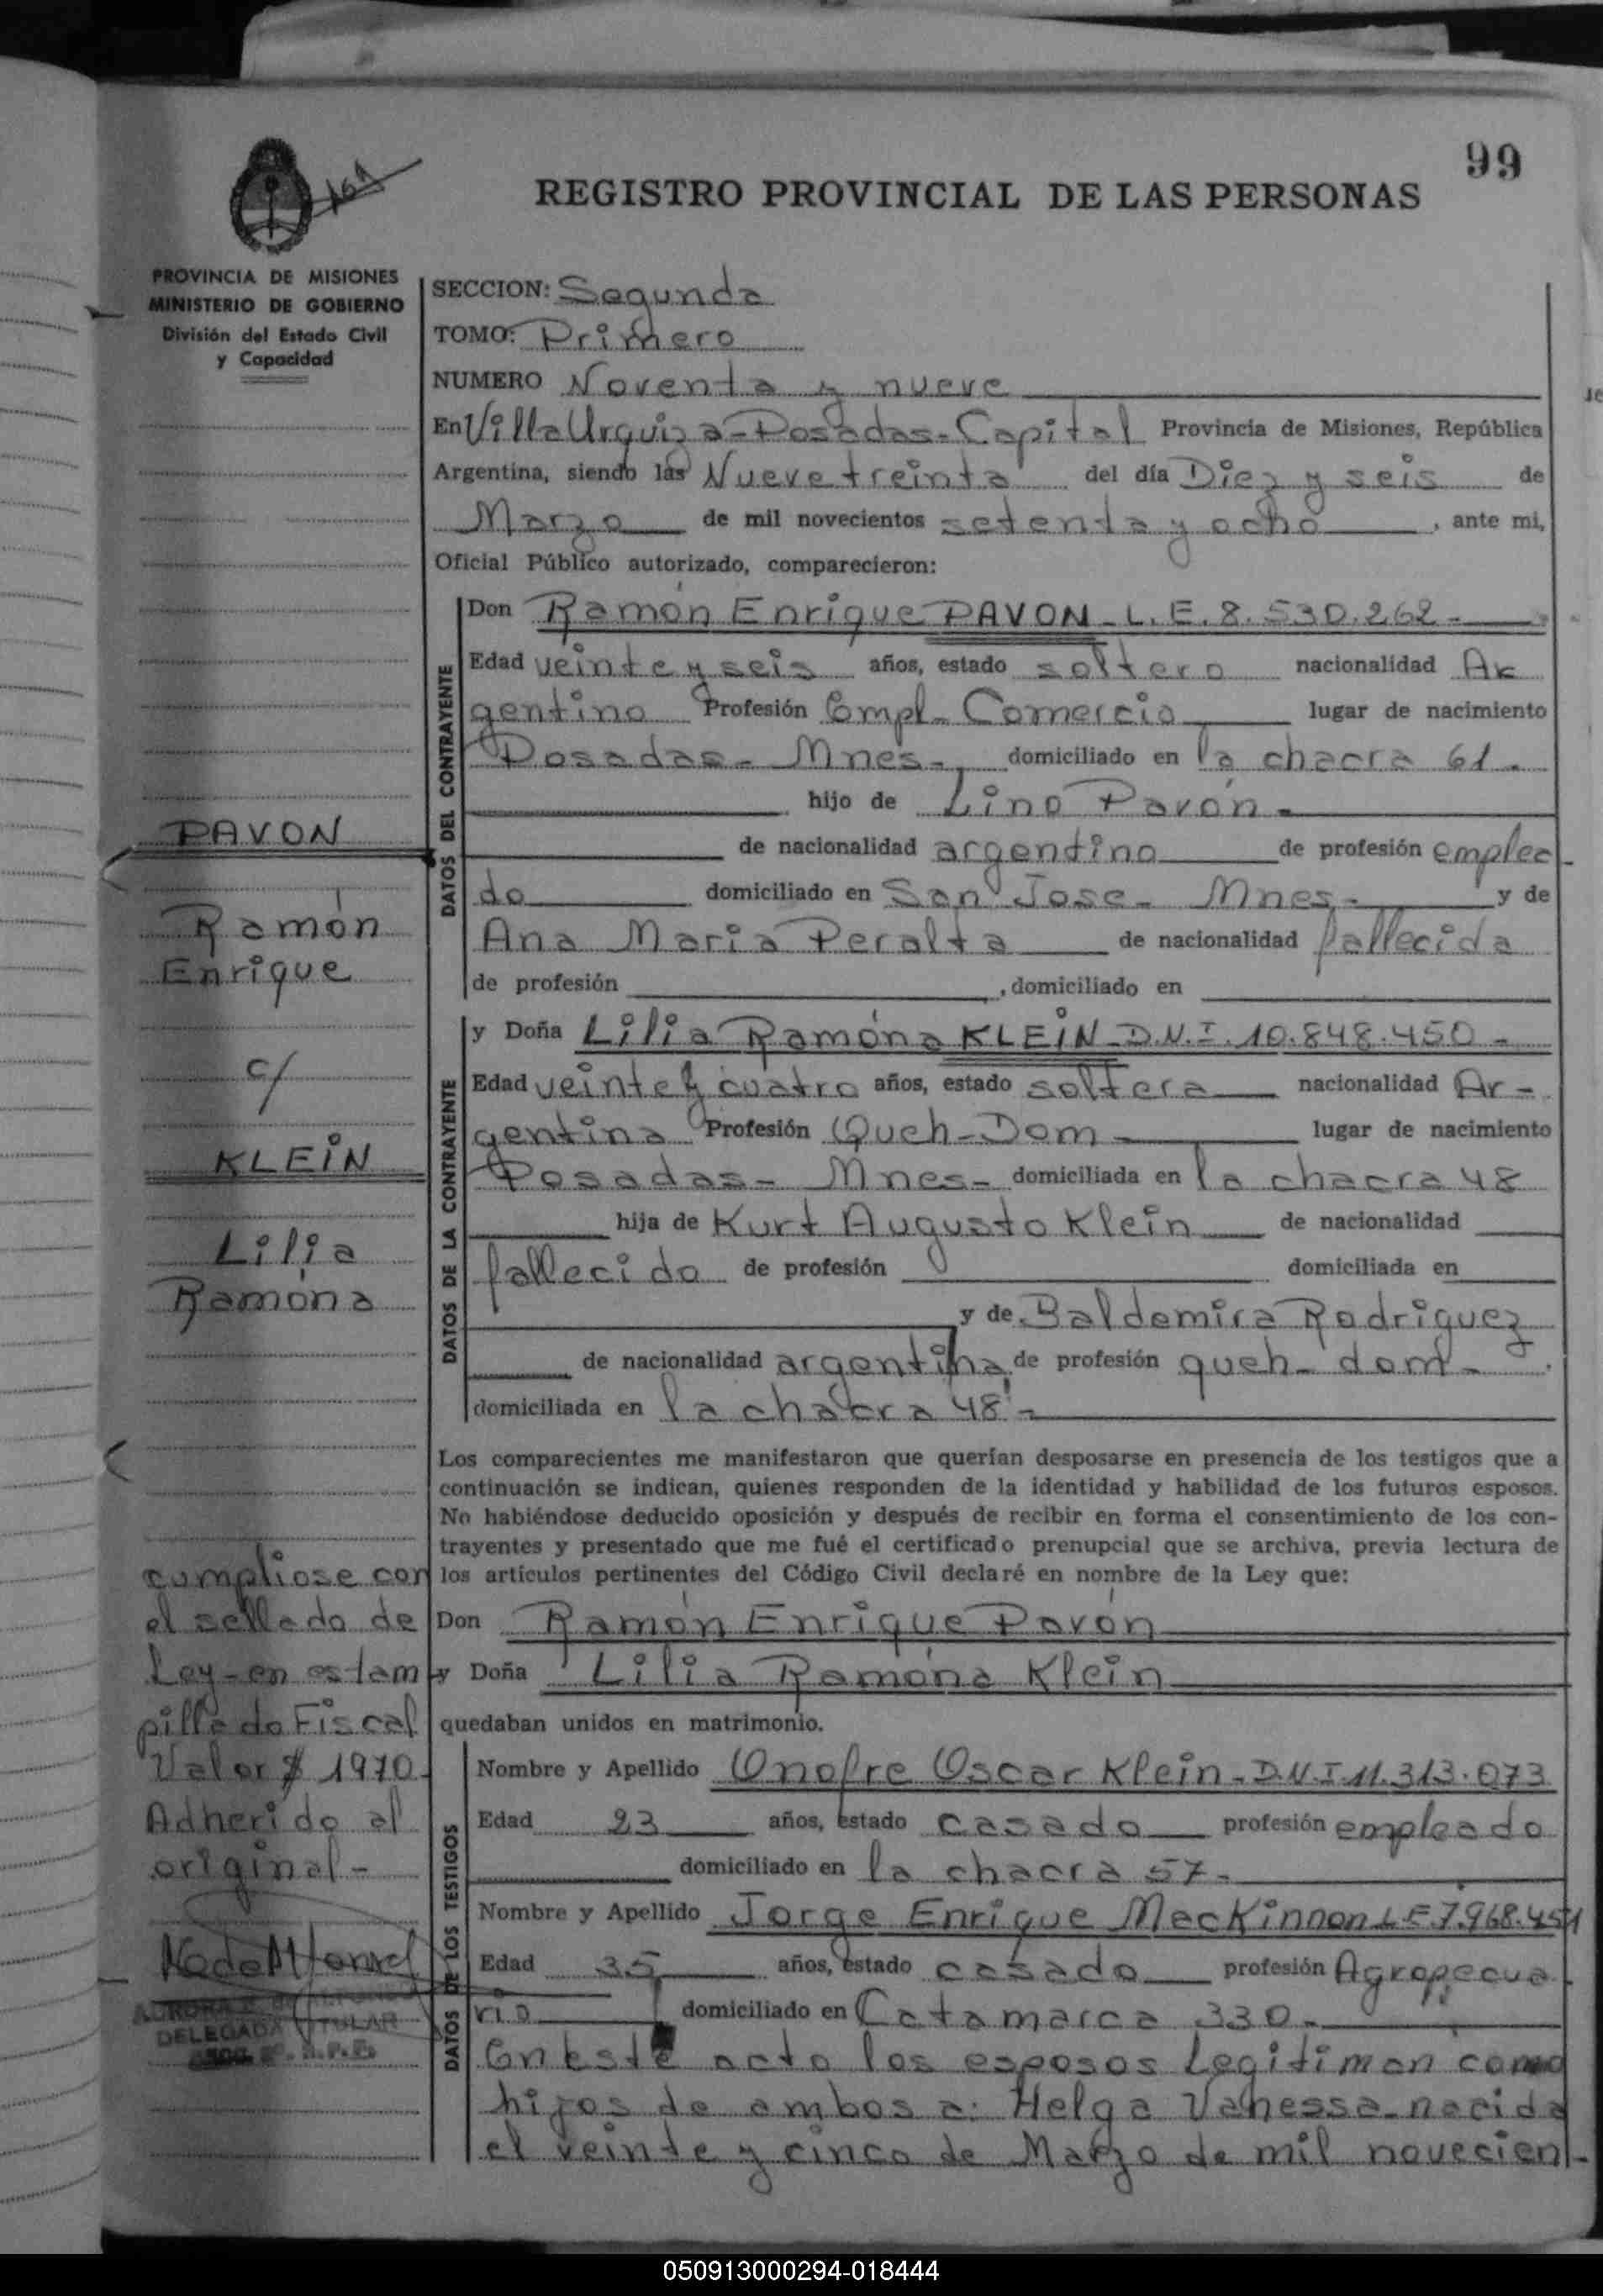 99
161
REGISTRO PROVINCIAL DE LAS PERSONAS
PROVINCIA DE MISIONES
MINISTERIO DE GOBIERNO
División del Estado Civil
y Capacidad
SECCION: Segunda
TOMO: Primero
NUMERO Noventa y nueve
En Villa Urquiza - Posadas - Capital Provincia de Misiones, República
Argentina, siendo las Nueve treinta del día Diez y seis de
Marzo de mil novecientos setenta y ocho, ante mi,
Oficial Público autorizado, comparecieron:
DATOS DEL CONTRAYENTE
Don Ramón Enrique PAVON - L.E. 8.530.262 -
Edad veinte y seis años, estado soltero nacionalidad Ar
gentino Profesión Empl- Comercio lugar de nacimiento
Posadas - Mnes - domiciliado en la chacra 61 -
hijo de Lino Pavón -
de nacionalidad argentino de profesión emplea-
do domiciliado en San Jose - Mnes - y de
Ana Maria Peralta de nacionalidad fallecida
de profesión , domiciliado en
DATOS DE LA CONTRAYENTE
y Doña Lilia Ramóna KLEIN - D.N.I. 10.848.450 -
Edad veinte y cuatro años, estado soltera nacionalidad Ar -
gentina Profesión Queh - Dom - lugar de nacimiento
Posadas - Mnes - domiciliada en la chacra 48
hija de Kurt Augusto Klein de nacionalidad
fallecido de profesión domiciliada en
y de Baldemira Rodriguez
de nacionalidad argentina de profesión queh - dom -
domiciliada en la chacra 48 -
Los comparecientes me manifestaron que querían desposarse en presencia de los testigos que a
continuación se indican, quienes responden de la identidad y habilidad de los futuros esposos.
No habiéndose deducido oposición y después de recibir en forma el consentimiento de los con-
trayentes y presentado que me fué el certificado prenupcial que se archiva, previa lectura de
los artículos pertinentes del Código Civil declaré en nombre de la Ley que:
Don Ramón Enrique Pavón
y Doña Lilia Ramóna Klein
quedaban unidos en matrimonio.
DATOS DE LOS TESTIGOS
Nombre y Apellido Onofre Oscar Klein - D.N.I 11.313.073
Edad 23 años, estado casado profesión empleado
domiciliado en la chacra 57 -
Nombre y Apellido Jorge Enrique MacKinnon L.E 7.968.451
Edad 35 años, estado casado profesión Agropecua
rio domiciliado en Catamarca 330 -
En este acto los esposos Legitiman como
hijos de ambos a: Helga Vanessa - nacida
el veinte y cinco de Marzo de mil novecien-
PAVON
Ramón
Enrique
c/
KLEIN
Lilia
Ramóna
cumpliose con
el sellado de
Ley - en estam
pillado Fiscal
Valor $ 1970 -
Adherido al
original -
DELEGADA TITULAR
050913000294-018444